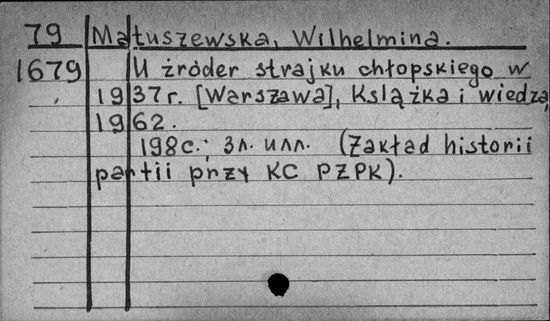 79 Matuszewska, Wilhelmina.
1679 U źróder strajku chłopskiego w
1937 r. [Warszawa], Książka i wiedza,
1962.
198 с.; 3 л. илл. (Zakład historii
partii przy KC PZPR).